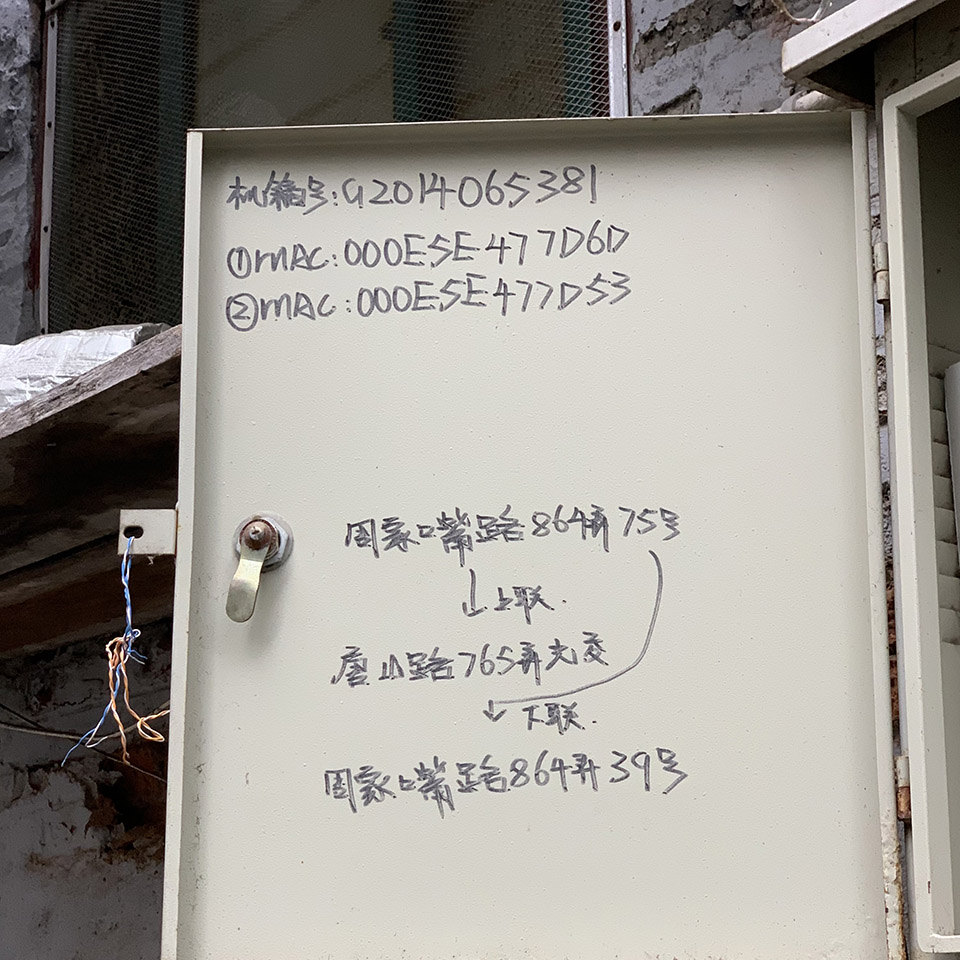 机编号:G2014065381
①MAC:000E5E477D6D
②MAC:000E5E477D53
周家口嘴路864弄75号
↓上联.
唐山路765弄光交
↓下联.
周家口嘴路864弄39号